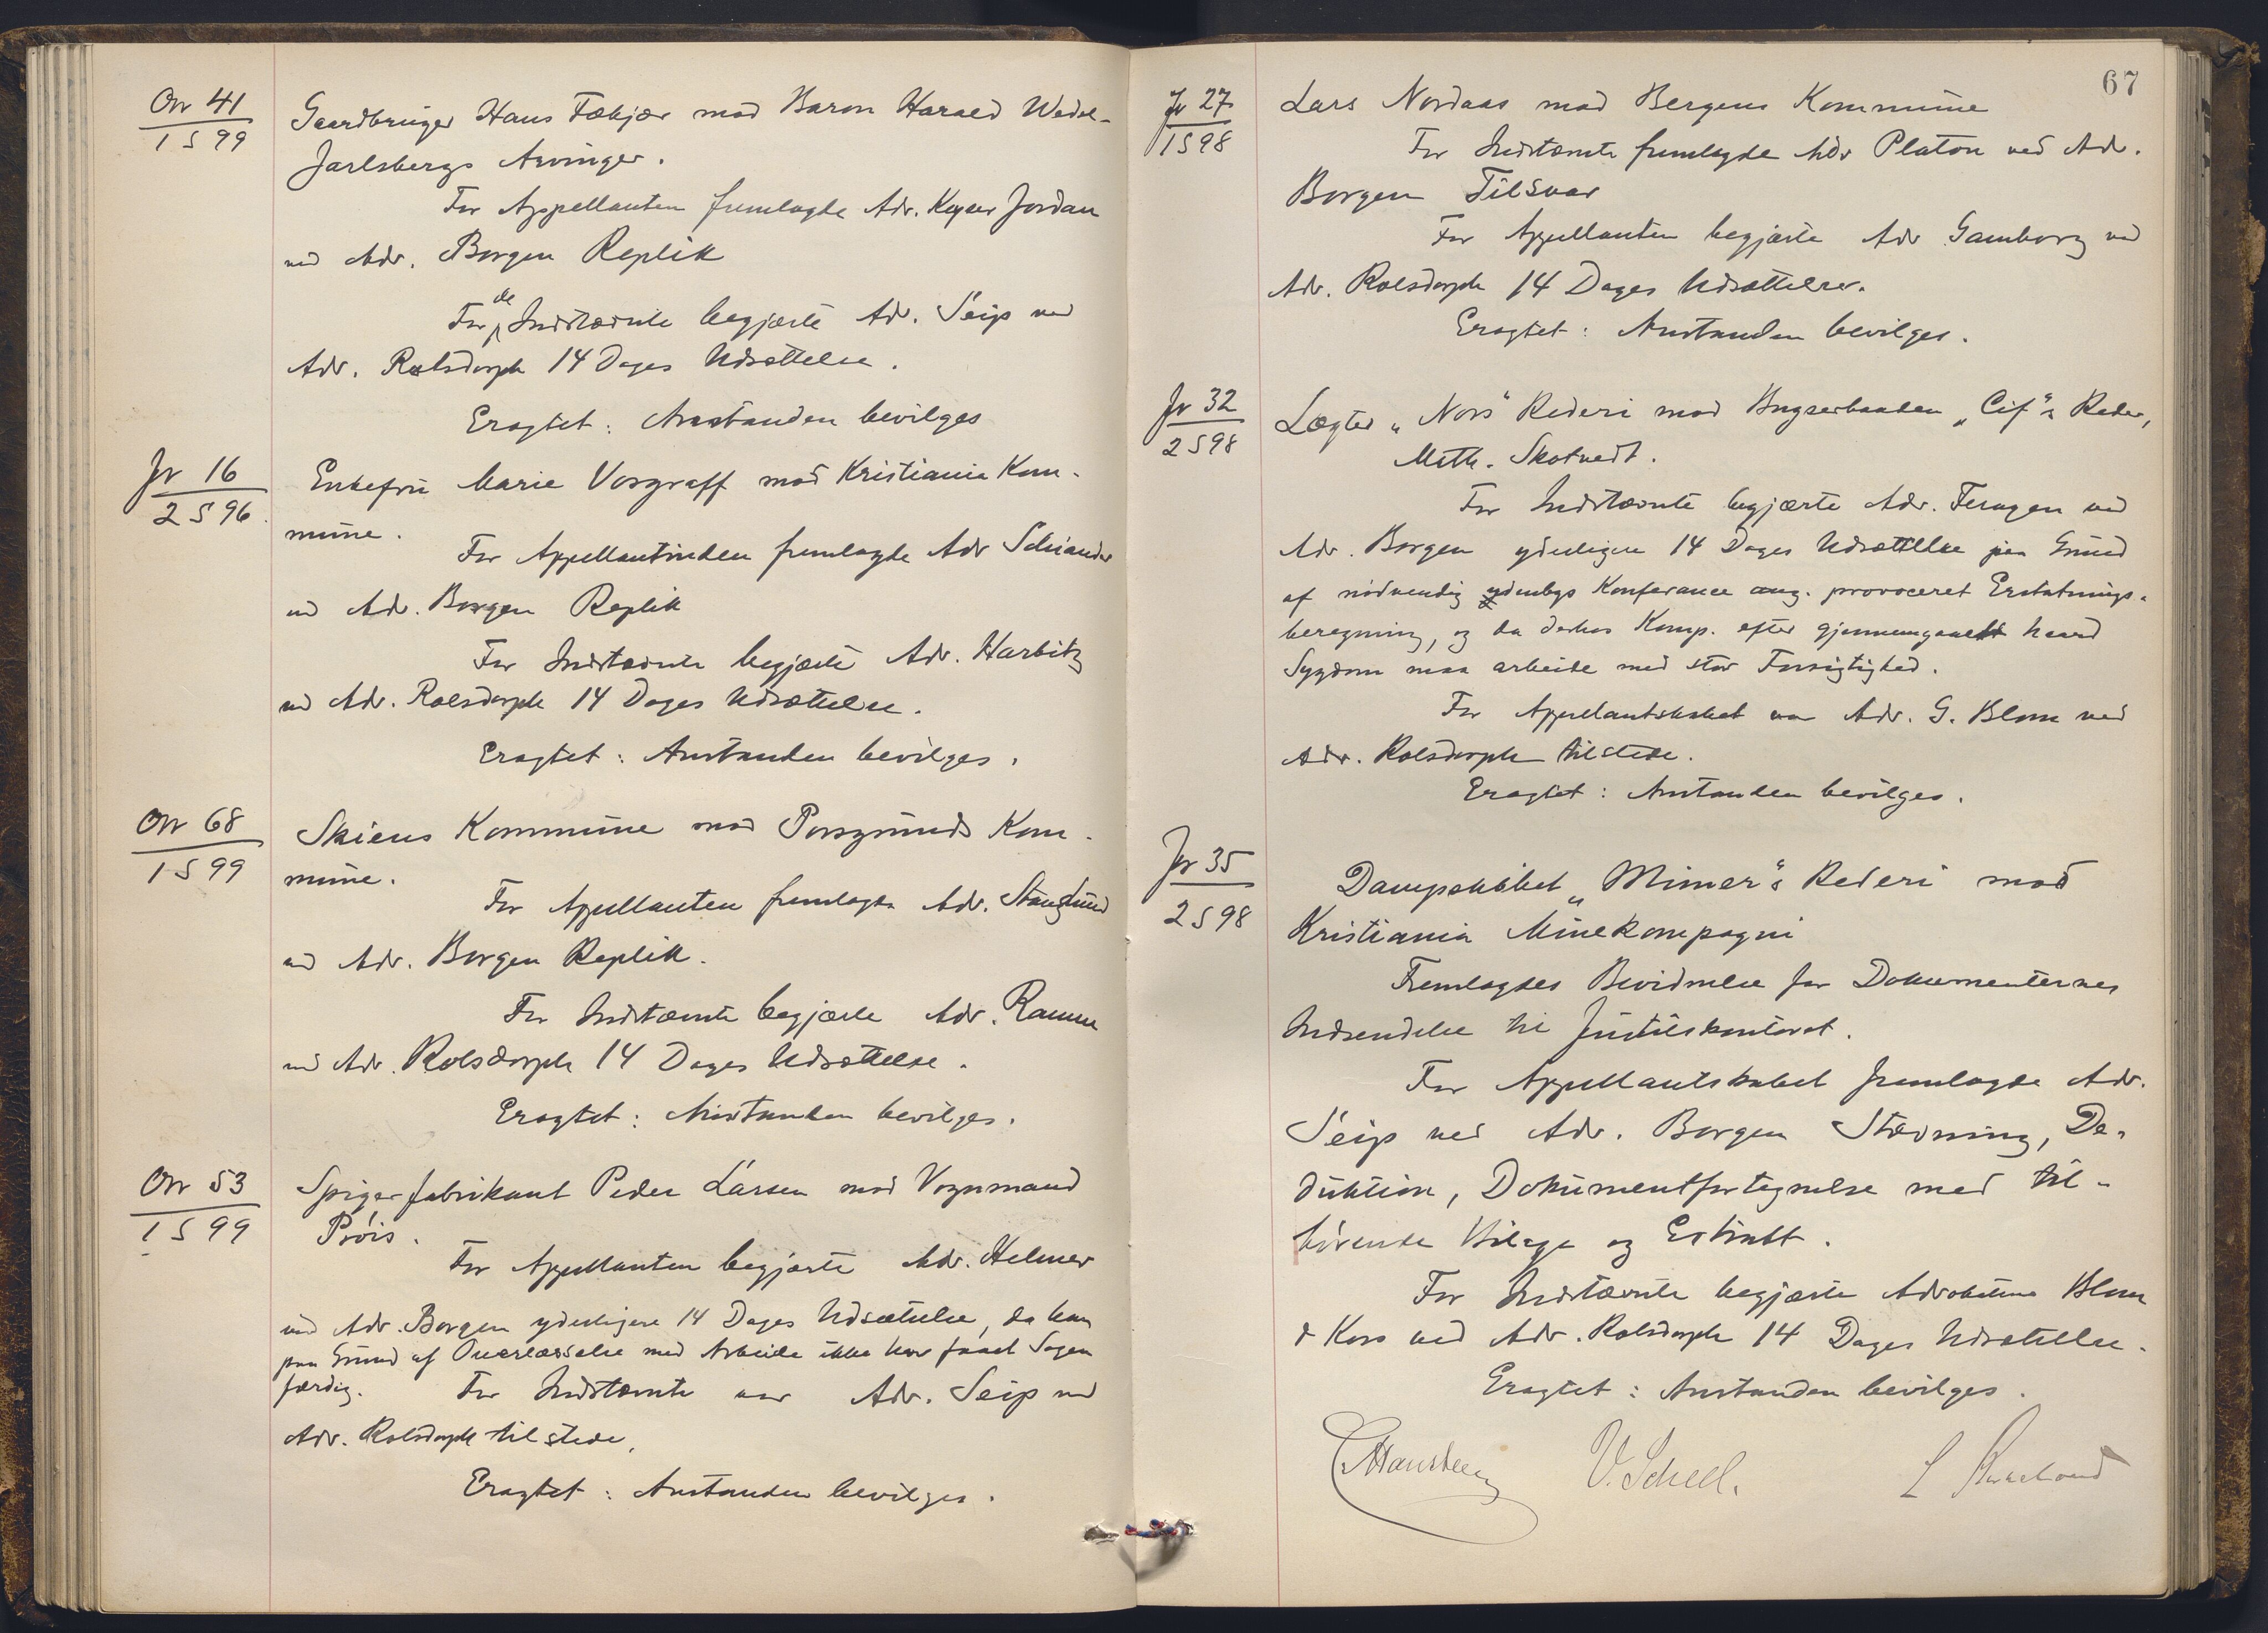 Or 41
1 S 99
Gaardbruger Hans Fæhjær mod Baron Harald Wedel-
Jarlsbergs Arvinger.
For Appellanten fremlagde Adv. Keyser Jordan
ved Adv. Borgen Replik
For de Indstævnte begjærte Adv. Seip ved
Adv. Rolsdorph 14 Dages Udsættelse.
Eragtet: Anstanden bevilges
Jr 16
2 S 96
Enkefru Marie Vosgraff mod Kristiania Kom-
mune.
For Appellantinden fremlagde Adv Schiander
ved Adv. Borgen Replik
For Indstævnte begjærte Adv. Harbitz
ved Adv. Rolsdorph 14 Dages Udsættelse.
Eragtet: Anstanden bevilges.
Or 68
1 S 99
Skiens Kommune mod Porsgrunds Kom-
mune.
For Appellanten fremlagde Adv. Stang Lund
ved Adv. Borgen Replik.
For Indstævnte begjærte Adv. Ramm
ved Adv. Rolsdorph 14 Dages Udsættelse.
Eragtet: Anstanden bevilges.
Or 53
1 S 99
Spigerfabrikant Peder Larsen mod Vognmand
Próis.
For Appellanten begjærte Adv. Helmer
ved Adv. Borgen yderligere 14 Dages Udsættelse, da han
paa Grund af Overlæsselse med Arbeide ikke har faaet Sagen
færdig. For Indstævnte var Adv. Seip ved
Adv. Rolsdorph tilstede,
Eragtet: Anstanden bevilges.
67
Jr 27
1 S 98
Lars Nordaas mod Bergens Kommune
For Indstævnte fremlagde Adv Platou ved Adv.
Borgen Tilsvar
For Appellanten begjærte Adv Gamborg ved
Adv. Rolsdorph 14 Dages Udsættelse.
Eragtet: Anstanden bevilges.
Jr 32
2 S 98
Lægter „Nors" Rederi mod Bugserbaaden „Cif"s Reder,
Math. Skotvedt.
For Indstævnte begjærte Adv. Feragen ved
Adv. Borgen yderligere 14 Dages Udsættelse paa Grund
af nødvendig udenbys Konferance ang. provoceret Erstatnings-
beregning, og da derhos Komp. efter gjennemgaaet haard
Sygdom maa arbeide med stor Forsigtighed.
For Appellantskabet var Adv. G. Blom ved
Adv. Rolsdorph tilstede.
Eragtet: Anstanden bevilges.
Jr 35
2 S 98
Dampskibet „Mimer"s Rederi mod
Kristiania Minekompagni
Fremlagdes Bevidnelse for Dokumenternes
Indsendelse til Justitskontoret.
For Appellantskabet fremlagde Adv.
Seip ved Adv. Borgen Stævning, De-
duktion, Dokumentfortegnelse med til-
hørende Bilage og Extrakt.
For Indstævnte begjærte Advokaterne Blom
& Koss ved Adv. Rolsdorph 14 Dages Udsættelse.
Eragtet: Anstanden bevilges.
C. Hansteen V. Scheel.